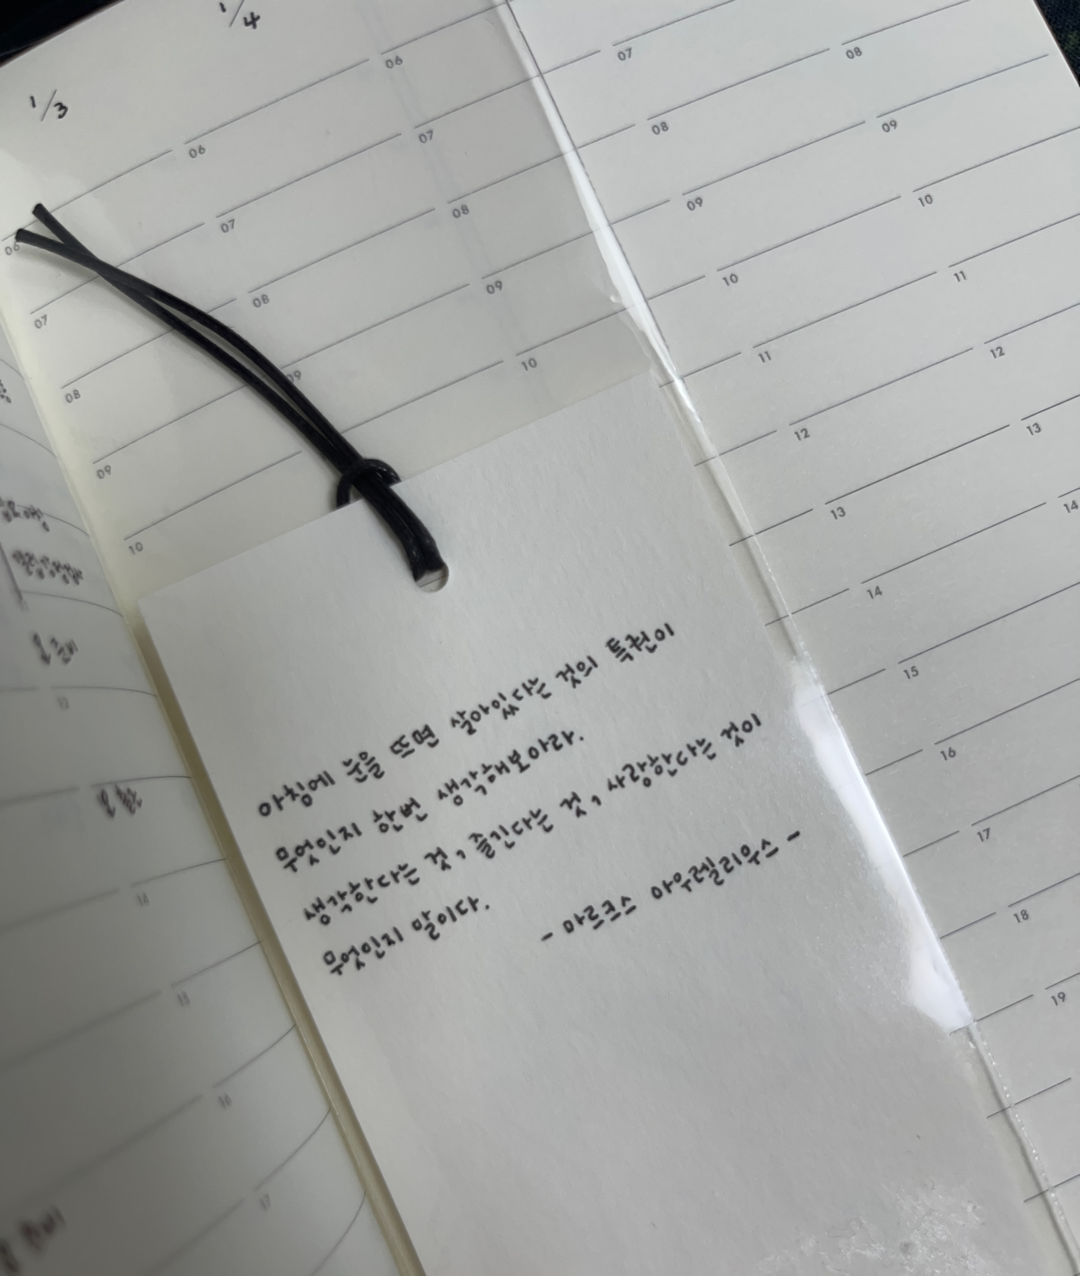 1/3
1/4
06
07
08
09
10
06
07
08
09
06
07
08
09
10
07
08
09
10
11
12
13
14
15
16
17
18
19
08
09
10
11
12
13
14
아침에 눈을 뜨면 살아있다는 것의 특권이
무엇인지 한번 생각해보아라.
생각한다는 것, 즐긴다는 것, 사랑한다는 것이
무엇인지 말이다.
- 마르크스 아우렐리우스 -